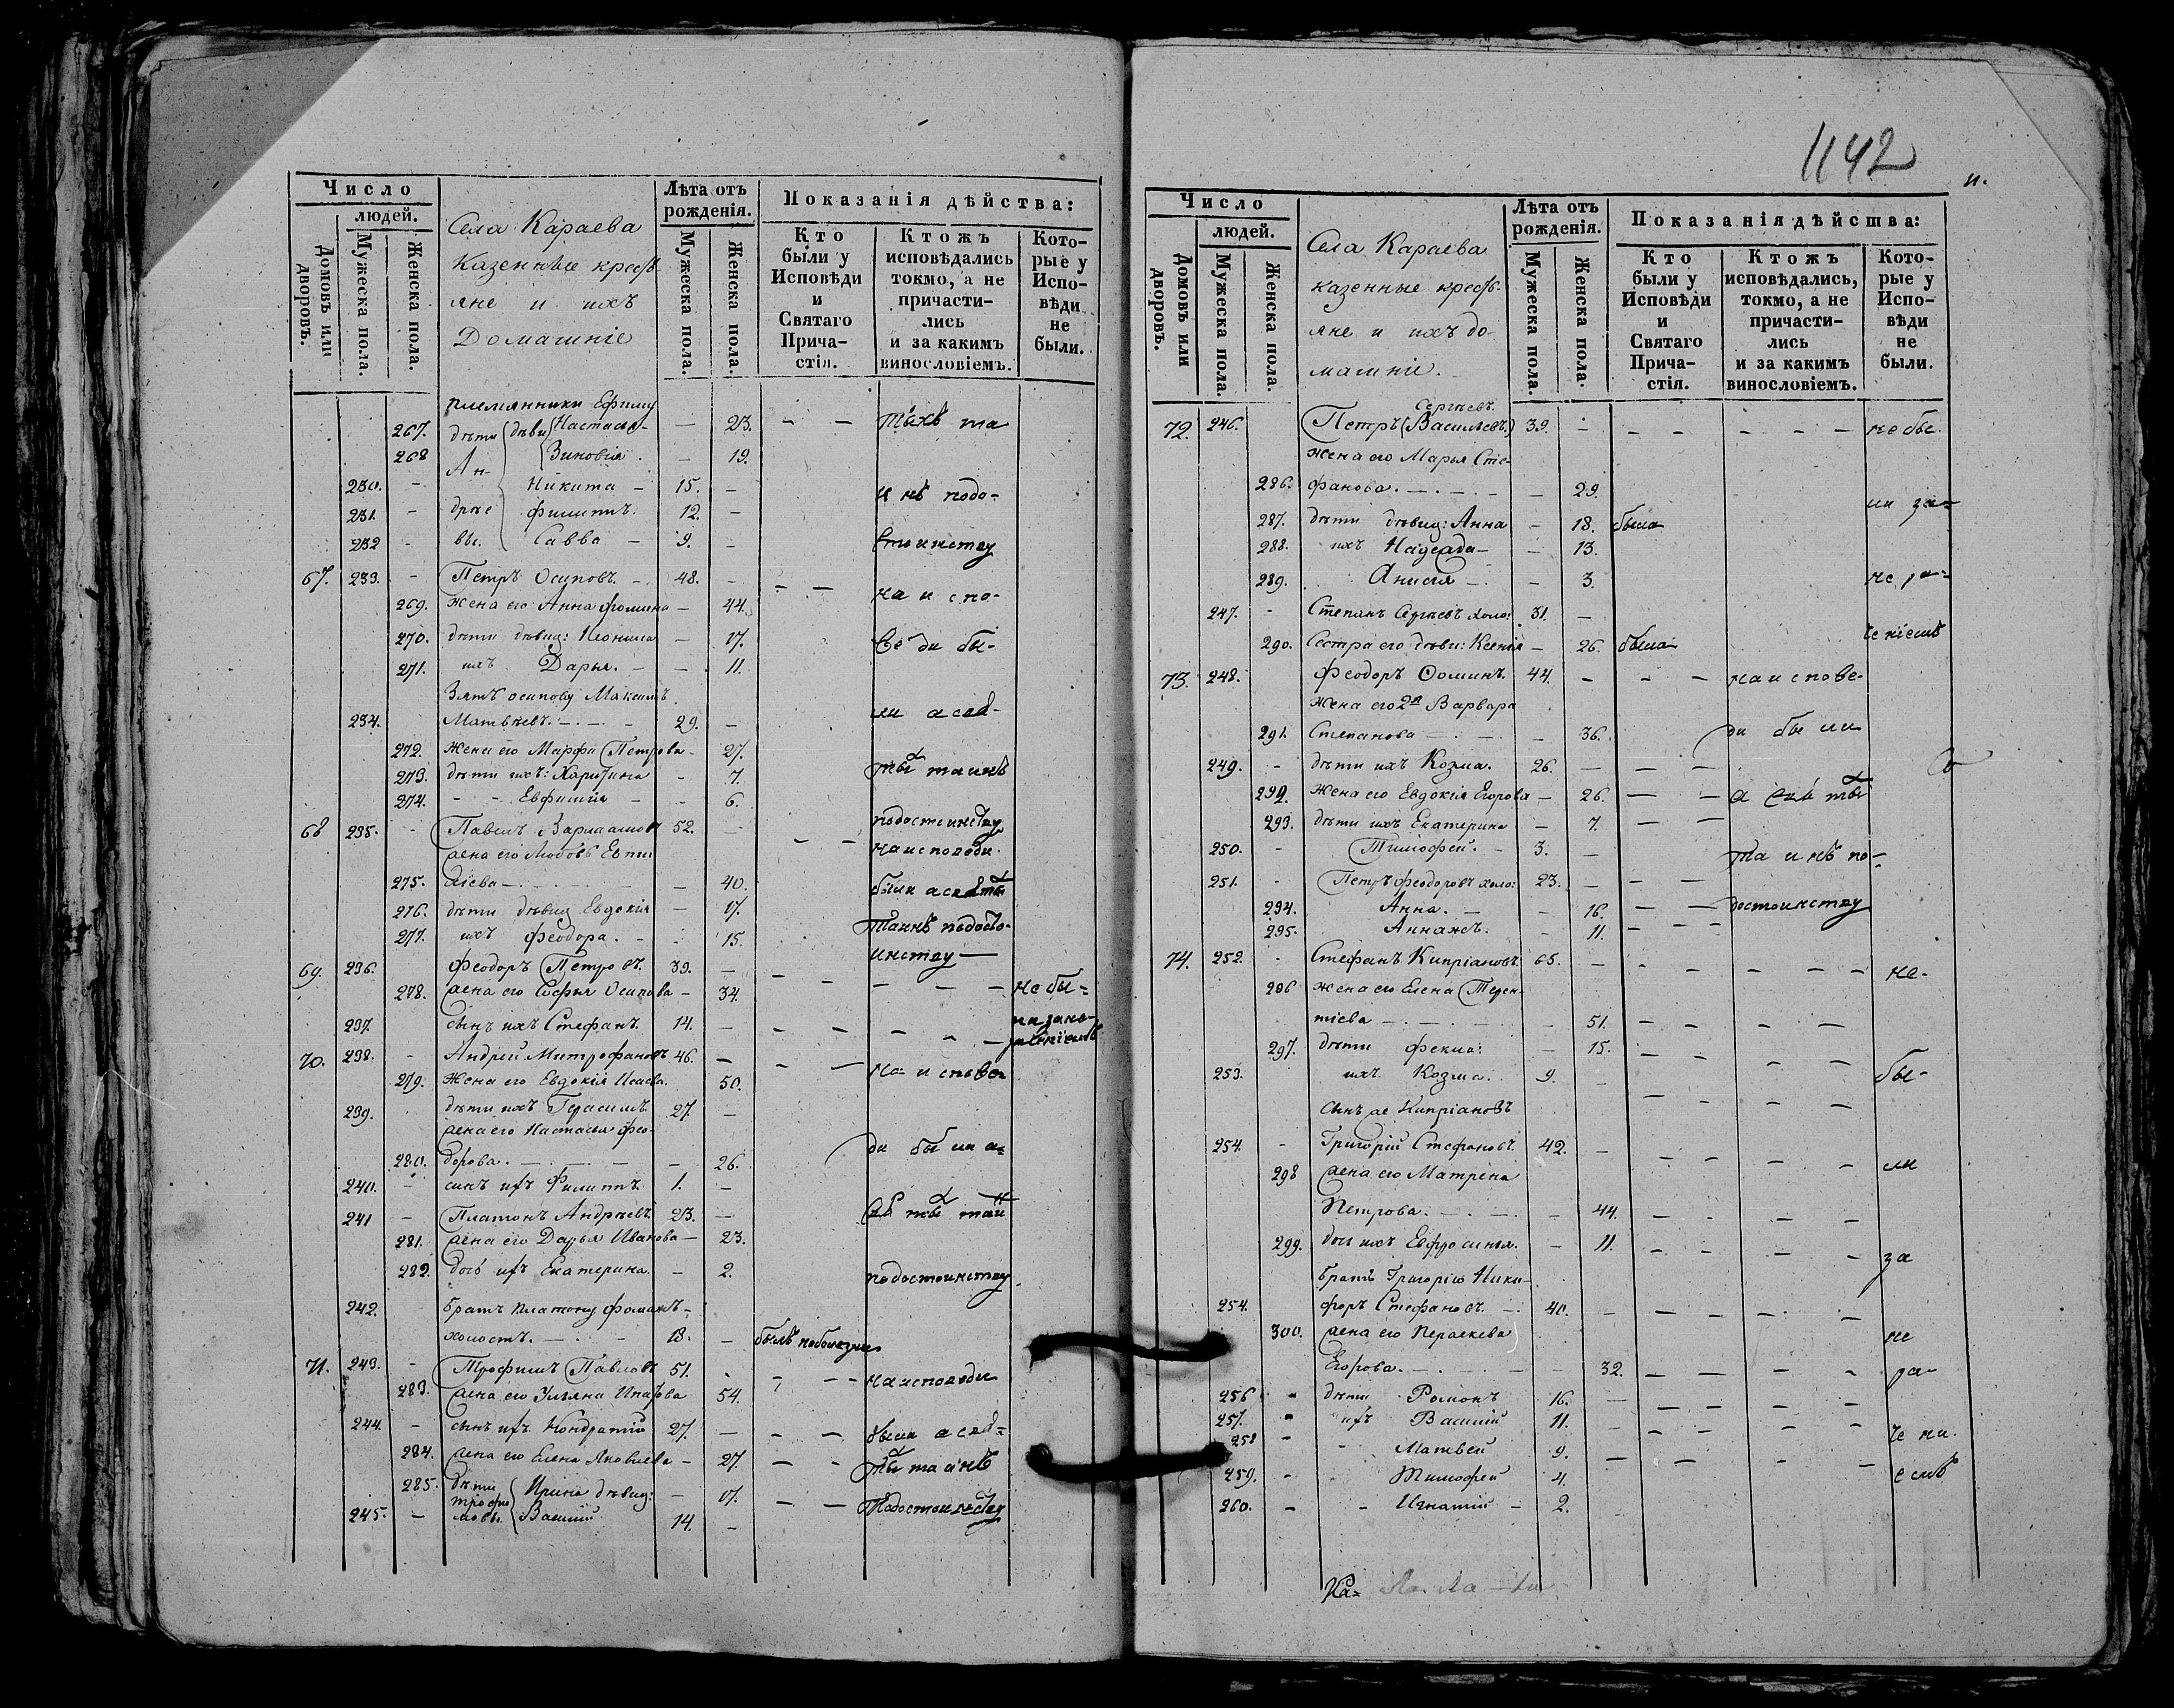 Число
людей.
Домовъ или дворовъ.
Мужеска пола.
Женска пола.
Села Караева
казенные кресть
яне и ихъ
Домашніе
Лѣта отъ
рожденія.
Мужеска пола.
Женска пола.
Показанія дѣйства:
Кто
были у
Исповѣди
и
Святаго
Прича-
стія.
Ктожъ
исповѣдались
токмо, а не
причасти-
лись
и за какимъ
винословіемъ.
Кото-
рые у
Испо-
вѣди
не
были.
племянники Ефиму
267. дѣти дѣви Настасья — 23. — — тѣхъ та
268 Ан- Зиновія. — 19.
230. — Никита — 15. — инъ недо-
231. — дрѣе Филиппъ. 12. —
232 — вы. Савва — 9. — стоинству
67. 233. — Петръ Осиповъ. — 48. — — —
269. жена его Анна Фомина — 44. на испо-
270. дѣти дѣвиц: — 17. ве ди бы-
271. ихъ Дарья. — — 11.
Зять осипову Максимъ
234. Матвѣевъ. — . — . — 29. — ли а свя-
272. Жена его Марфа Петрова — 27.
273. дѣти ихъ: Харитина — 7. тых таинъ
274. — — Евфимія — — 6.
68 235. — Павелъ Варлаамовъ 52. — недостоинству
жена его Любовь Евти — — на исповеди.
275. хіева — . — 40. были а святых
276. дѣти дѣвиц Евдокія — 17. таинъ недосто-
277. ихъ Феодора. — — 15. инству —
69. 236. Феодоръ Петровъ. 39. — —
278. жена его Софья Осипова — 34. — — — — не бы-
237. сынъ ихъ Стефанъ. 14. — — — — — — ли за не-
70. 238. — Андрей Митрофановъ 46. — — — раченіемъ
279. Жена его Евдокія Исаева. 50. на испове-
239. дѣти ихъ Герасимъ 27. —
жена его Настасья Фео-
280. дорова. — . — — 26. ди были а-
240. — сынъ ихъ Филиппъ. 1. —
241 — Платонъ Андреевъ. 23. — свя тых таи
281. жена его Дарья Иванова — 23.
282. дочь ихъ Екатерина. — 2. недостоинству
242. братъ Платону
холостъ. — . — 18. — былъ
71. 243. — Трофимъ Павловъ 51. — — — на исповеди
283. жена его Ульяна 54.
244. — сынъ ихъ Кондратій 27. — — — были а свя-
284. жена его Елена Яковлева — 27. — — тых таинъ
285. дѣти Ирина дѣвиц: — 17. — — недостоинству
трофи
245. — мовы. Василій 14. —
1142
и.
Число
людей.
Домовъ или дворовъ.
Мужеска пола.
Женска пола.
Села Караева
казенные кресть-
яне и ихъ до
машніе.
Лѣта отъ
рожденія.
Мужеска пола.
Женска пола.
Показанія дѣйства:
Кто
были у
Исповѣди
и
Святаго
Прича-
стія.
Ктожъ
исповѣдались,
токмо, а не
причасти-
лись
и за какимъ
винословіемъ.
Кото-
рые у
Испо-
вѣди
не
были.
Сергѣевъ.
72. 246. Петръ (Васильевъ.) 39. — — — — — — не бы.
жена его Марья Сте-
286. фанова. — . — . — — 29. ли за-
287. дѣти дѣвиц: Анна — 18. была
288. ихъ Надежда — — 13.
289. Анисія — — 3. не ра-
247. — Степанъ Сергѣевъ холо: 31. —
290. Сестра его дѣви: Ксенія — 26. была ченіемъ
73. 248. Феодоръ Фоминъ. 44. — — — на испове-
жена его 2я Варвара
291. Степанова — . — . — 36. ди были
249. — дѣти ихъ Козма. 26. — — —
292. Жена его Евдокія Егорова — 26. — — а свя тых
293. дѣти ихъ Екатерина — 7. — —
250. — Тимофей. — 3. — та инъ не-
251. — Петръ Феодоровъ холо: 23. — — —
294. Анна. — — 16. — — достоинству
295. Аннажъ. — 11. — — —
74. 252. — Стефанъ Кипріановъ. 65. — — — — — не-
296 жена его Елена Терен-
тіева — . — . — . — 51. — — — —
297. дѣти Фекла: — 15. — — — —
253. ихъ Козма. 9. — бы-
сынъ же Кипріановъ — — — —
254. — Григорій Стефановъ. 42. — — — — —
298 жена его Матрена ли
Петрова. — . — . — 44. — — — —
299. дочь ихъ Евфросинья. — 11. — — — — за
братъ Григорію Ники-
254. форъ Стефановъ. — 40. — — — — —
300. жена его Пераскева не
Егорова. — . — — — 32. — — — — ра-
256 — дѣти Романъ 16. — — — — —
257. — ихъ Василій 11. — — — — — че ни.
258 — — Матвей 9. — — — —
259. — — Тимофей 4. емъ
260. — — Игнатій — 2.
Ка-